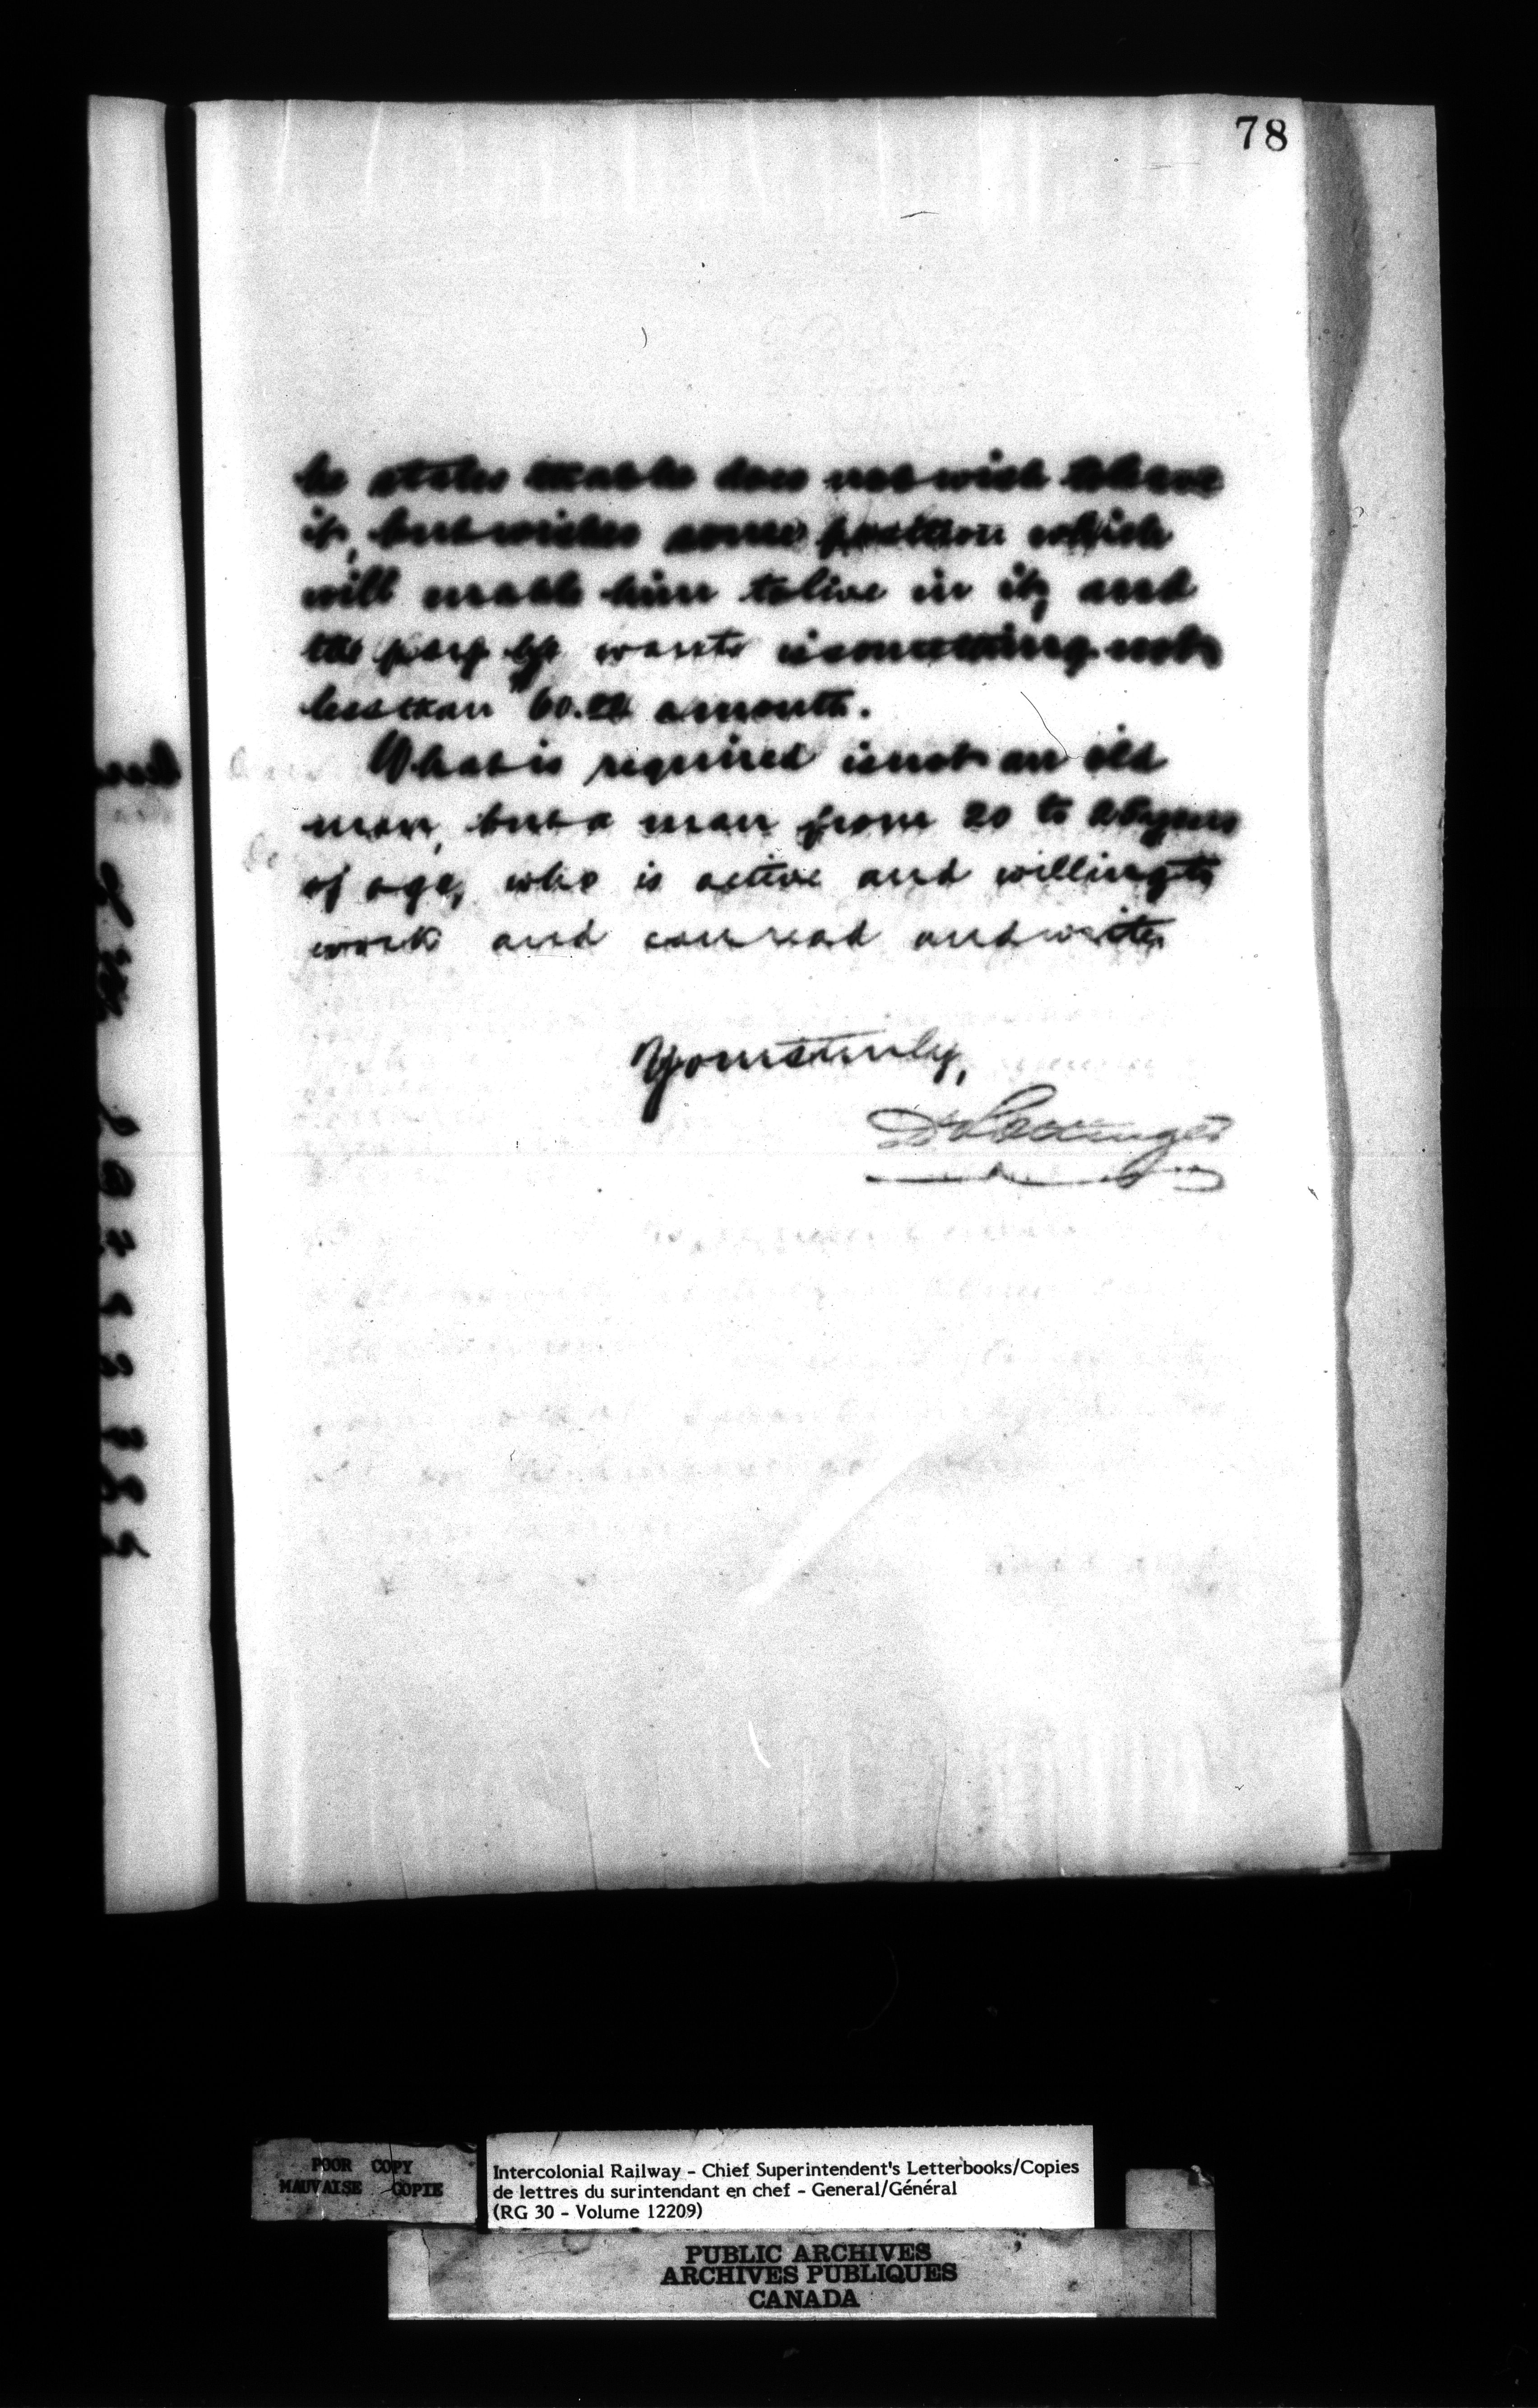 78
he states that he does not wish to leave
it, but wishes some position which
will enable him to live in it, and
the pay he wants is something not
less than 60.00 a month.
What is required is not an old
man, but a man from 20 to 25 years
of age, who is active and willing to
work and can read and write.
Yours truly,
D Pottinger
POOR COPY
MAUVAISE COPIE
Intercolonial Railway - Chief Superintendent's Letterbooks/Copies
de lettres du surintendant en chef - General/Général
(RG 30 - Volume 12209)
PUBLIC ARCHIVES
ARCHIVES PUBLIQUES
CANADA